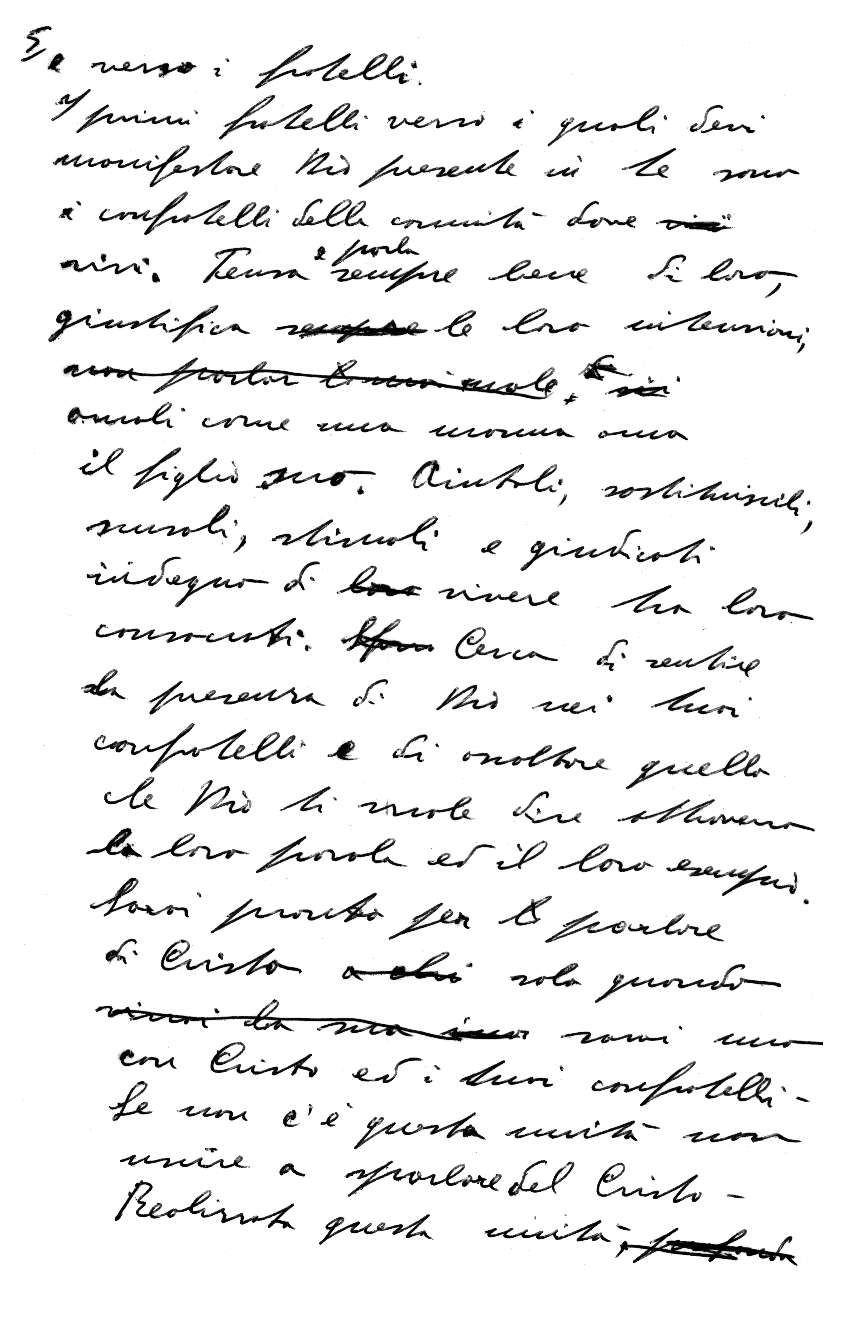 5
e verso i fratelli.
I primi fratelli verso i quali devi
manifestare Dio presente in te sono
i confratelli della comunità dove vivi
vivi. Pensa e parla sempre bene di loro,
giustifica sempre le loro intenzioni,
non parlar loro mai male. E vivi
amali come una mamma ama
il figlio suo. Aiutali, sostituiscili,
scusali, stimali e giudicati
indegno di loro vivere tra loro
consacrati. Cerca di sentire
la presenza di Dio nei tuoi
confratelli e di ascoltare quello
che Dio ti vuole dire attraverso
la loro parola ed il loro esempio.
Sarai pronto per parlare
di Cristo a chi solo quando
vivrai la sua sarai uno
con Cristo ed i tuoi confratelli -
Se non c'è questa unità non
uscire a parlare del Cristo -
Realizzata questa unità, profonda